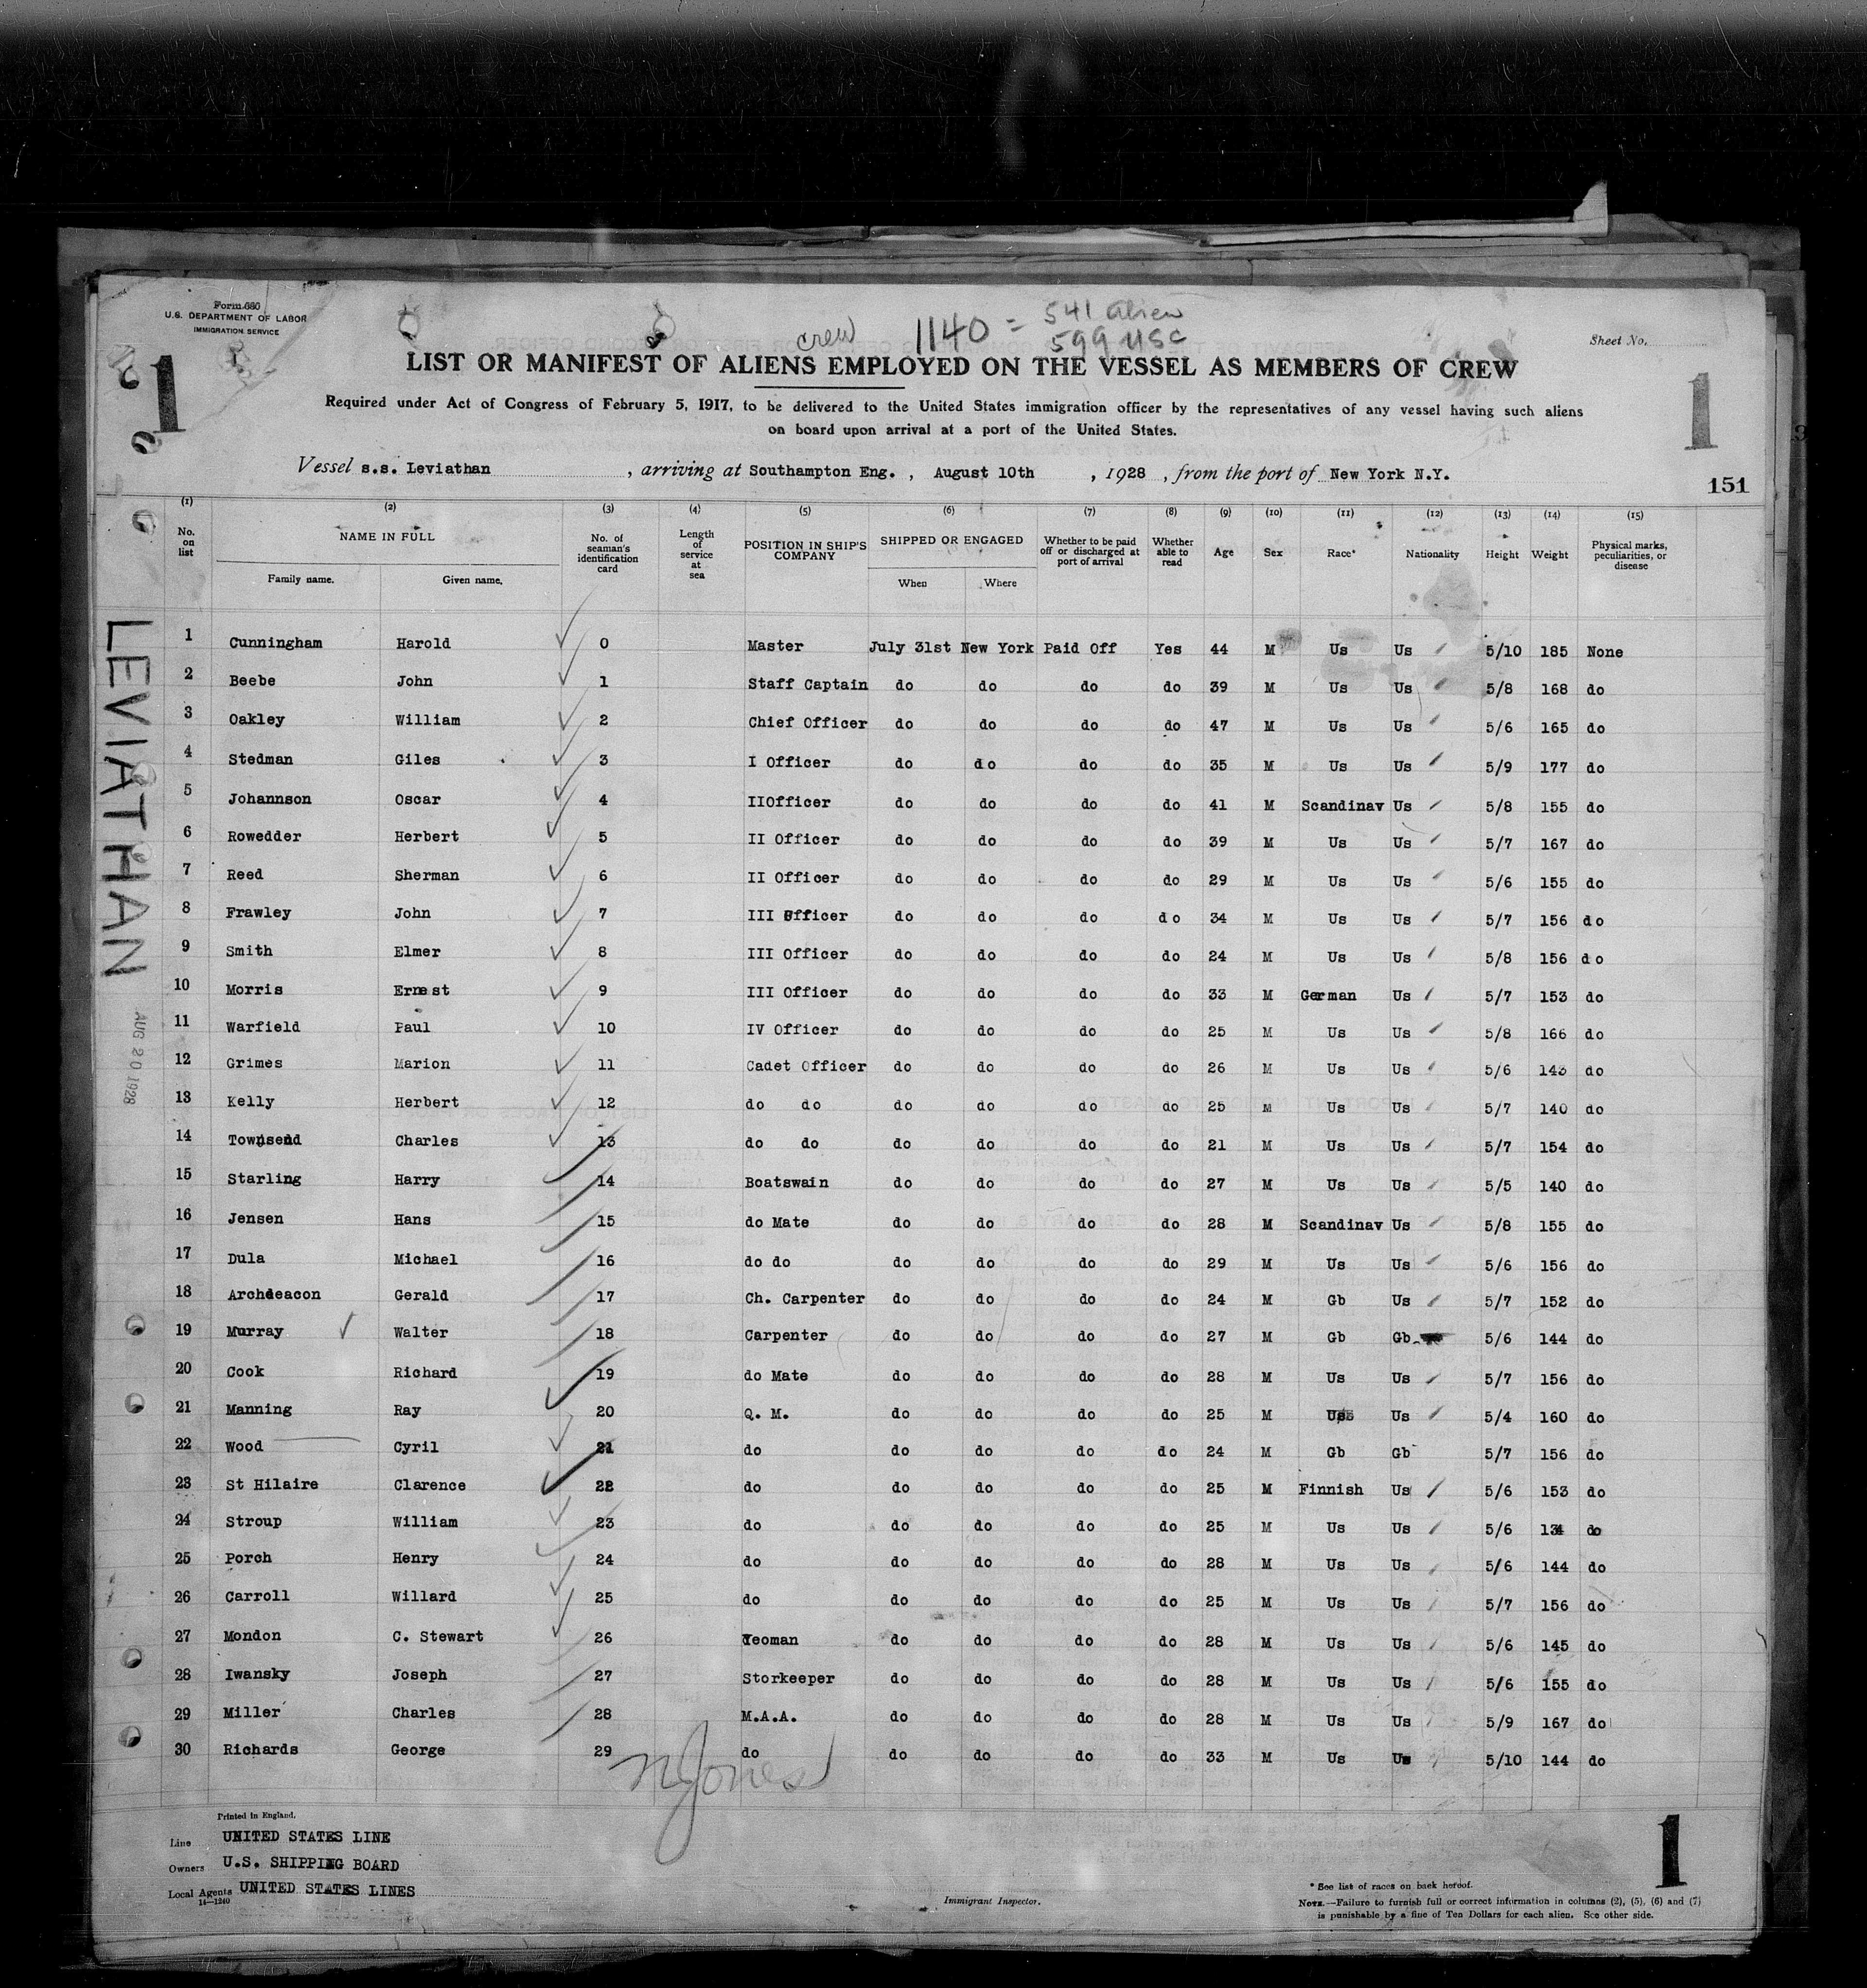 Form 686
U.S. DEPARTMENT OF LABOR
IMMIGRATION SERVICE
crew 1140 = 541 alien
599 USC
Sheet No.
1
1
LIST OR MANIFEST OF ALIENS EMPLOYED ON THE VESSEL AS MEMBERS OF CREW
Required under Act of Congress of February 5, 1917, to be delivered to the United States immigration officer by the representatives of any vessel having such aliens
on board upon arrival at a port of the United States.
Vessel s.s. Leviathan, arriving at Southampton Eng., August 10th, 1928, from the port of New York N.Y.
151
(1) (2) (3) (4) (5) (6) (7) (8) (9) (10) (11) (12) (13) (14) (15)
No. on list NAME IN FULL Family name. Given name. No. of seaman's identification card Length of service at sea POSITION IN SHIP'S COMPANY SHIPPED OR ENGAGED When Where Whether to be paid off or discharged at port of arrival Whether able to read Age Sex Race* Nationality Height Weight Physical marks, peculiarities, or disease
1 Cunningham Harold 0 Master July 31st New York Paid Off Yes 44 M Us Us 5/10 185 None
2 Beebe John 1 Staff Captain do do do do 39 M Us Us 5/8 168 do
3 Oakley William 2 Chief Officer do do do do 47 M Us Us 5/6 165 do
4 Stedman Giles 3 I Officer do do do do 35 M Us Us 5/9 177 do
5 Johannson Oscar 4 IIOfficer do do do do 41 M Scandinav Us 5/8 155 do
6 Rowedder Herbert 5 II Officer do do do do 39 M Us Us 5/7 167 do
7 Reed Sherman 6 II Officer do do do do 29 M Us Us 5/6 155 do
8 Frawley John 7 III Officer do do do do 34 M Us Us 5/7 156 do
9 Smith Elmer 8 III Officer do do do do 24 M Us Us 5/8 156 do
10 Morris Ernest 9 III Officer do do do do 33 M German Us 5/7 153 do
11 Warfield Paul 10 IV Officer do do do do 25 M Us Us 5/8 166 do
12 Grimes Marion 11 Cadet Officer do do do do 26 M Us Us 5/6 143 do
13 Kelly Herbert 12 do do do do do do 25 M Us Us 5/7 140 do
14 Townsend Charles 13 do do do do do do 21 M Us Us 5/7 154 do
15 Starling Harry 14 Boatswain do do do do 27 M Us Us 5/5 140 do
16 Jensen Hans 15 do Mate do do do do 28 M Scandinav Us 5/8 155 do
17 Dula Michael 16 do do do do do do 29 M Us Us 5/6 156 do
18 Archdeacon Gerald 17 Ch. Carpenter do do do do 24 M Gb Us 5/7 152 do
19 Murray Walter 18 Carpenter do do do do 27 M Gb Gb 5/6 144 do
20 Cook Richard 19 do Mate do do do do 28 M Us Us 5/7 156 do
21 Manning Ray 20 Q. M. do do do do 25 M Us Us 5/4 160 do
22 Wood Cyril 21 do do do do do 24 M Gb Gb 5/7 156 do
23 St Hilaire Clarence 22 do do do do do 25 M Finnish Us 5/6 153 do
24 Stroup William 23 do do do do do 25 M Us Us 5/6 134 do
25 Porch Henry 24 do do do do do 28 M Us Us 5/6 144 do
26 Carroll Willard 25 do do do do do 25 M Us Us 5/7 156 do
27 Mondon C. Stewart 26 Yeoman do do do do 28 M Us Us 5/6 145 do
28 Iwansky Joseph 27 Storkeeper do do do do 28 M Us Us 5/6 155 do
29 Miller Charles 28 M.A.A. do do do do 28 M Us Us 5/9 167 do
30 Richards George 29 do do do do do 33 M Us Us 5/10 144 do
LEVIATHAN
AUG 20 1928
N Jones
Printed in England.
Line UNITED STATES LINE
Owners U.S. SHIPPING BOARD
Local Agents UNITED STATES LINES
14—1240
Immigrant Inspector.
* See list of races on back hereof.
NOTE.—Failure to furnish full or correct information in columns (2), (5), (6) and (7)
is punishable by a fine of Ten Dollars for each alien. See other side.
1